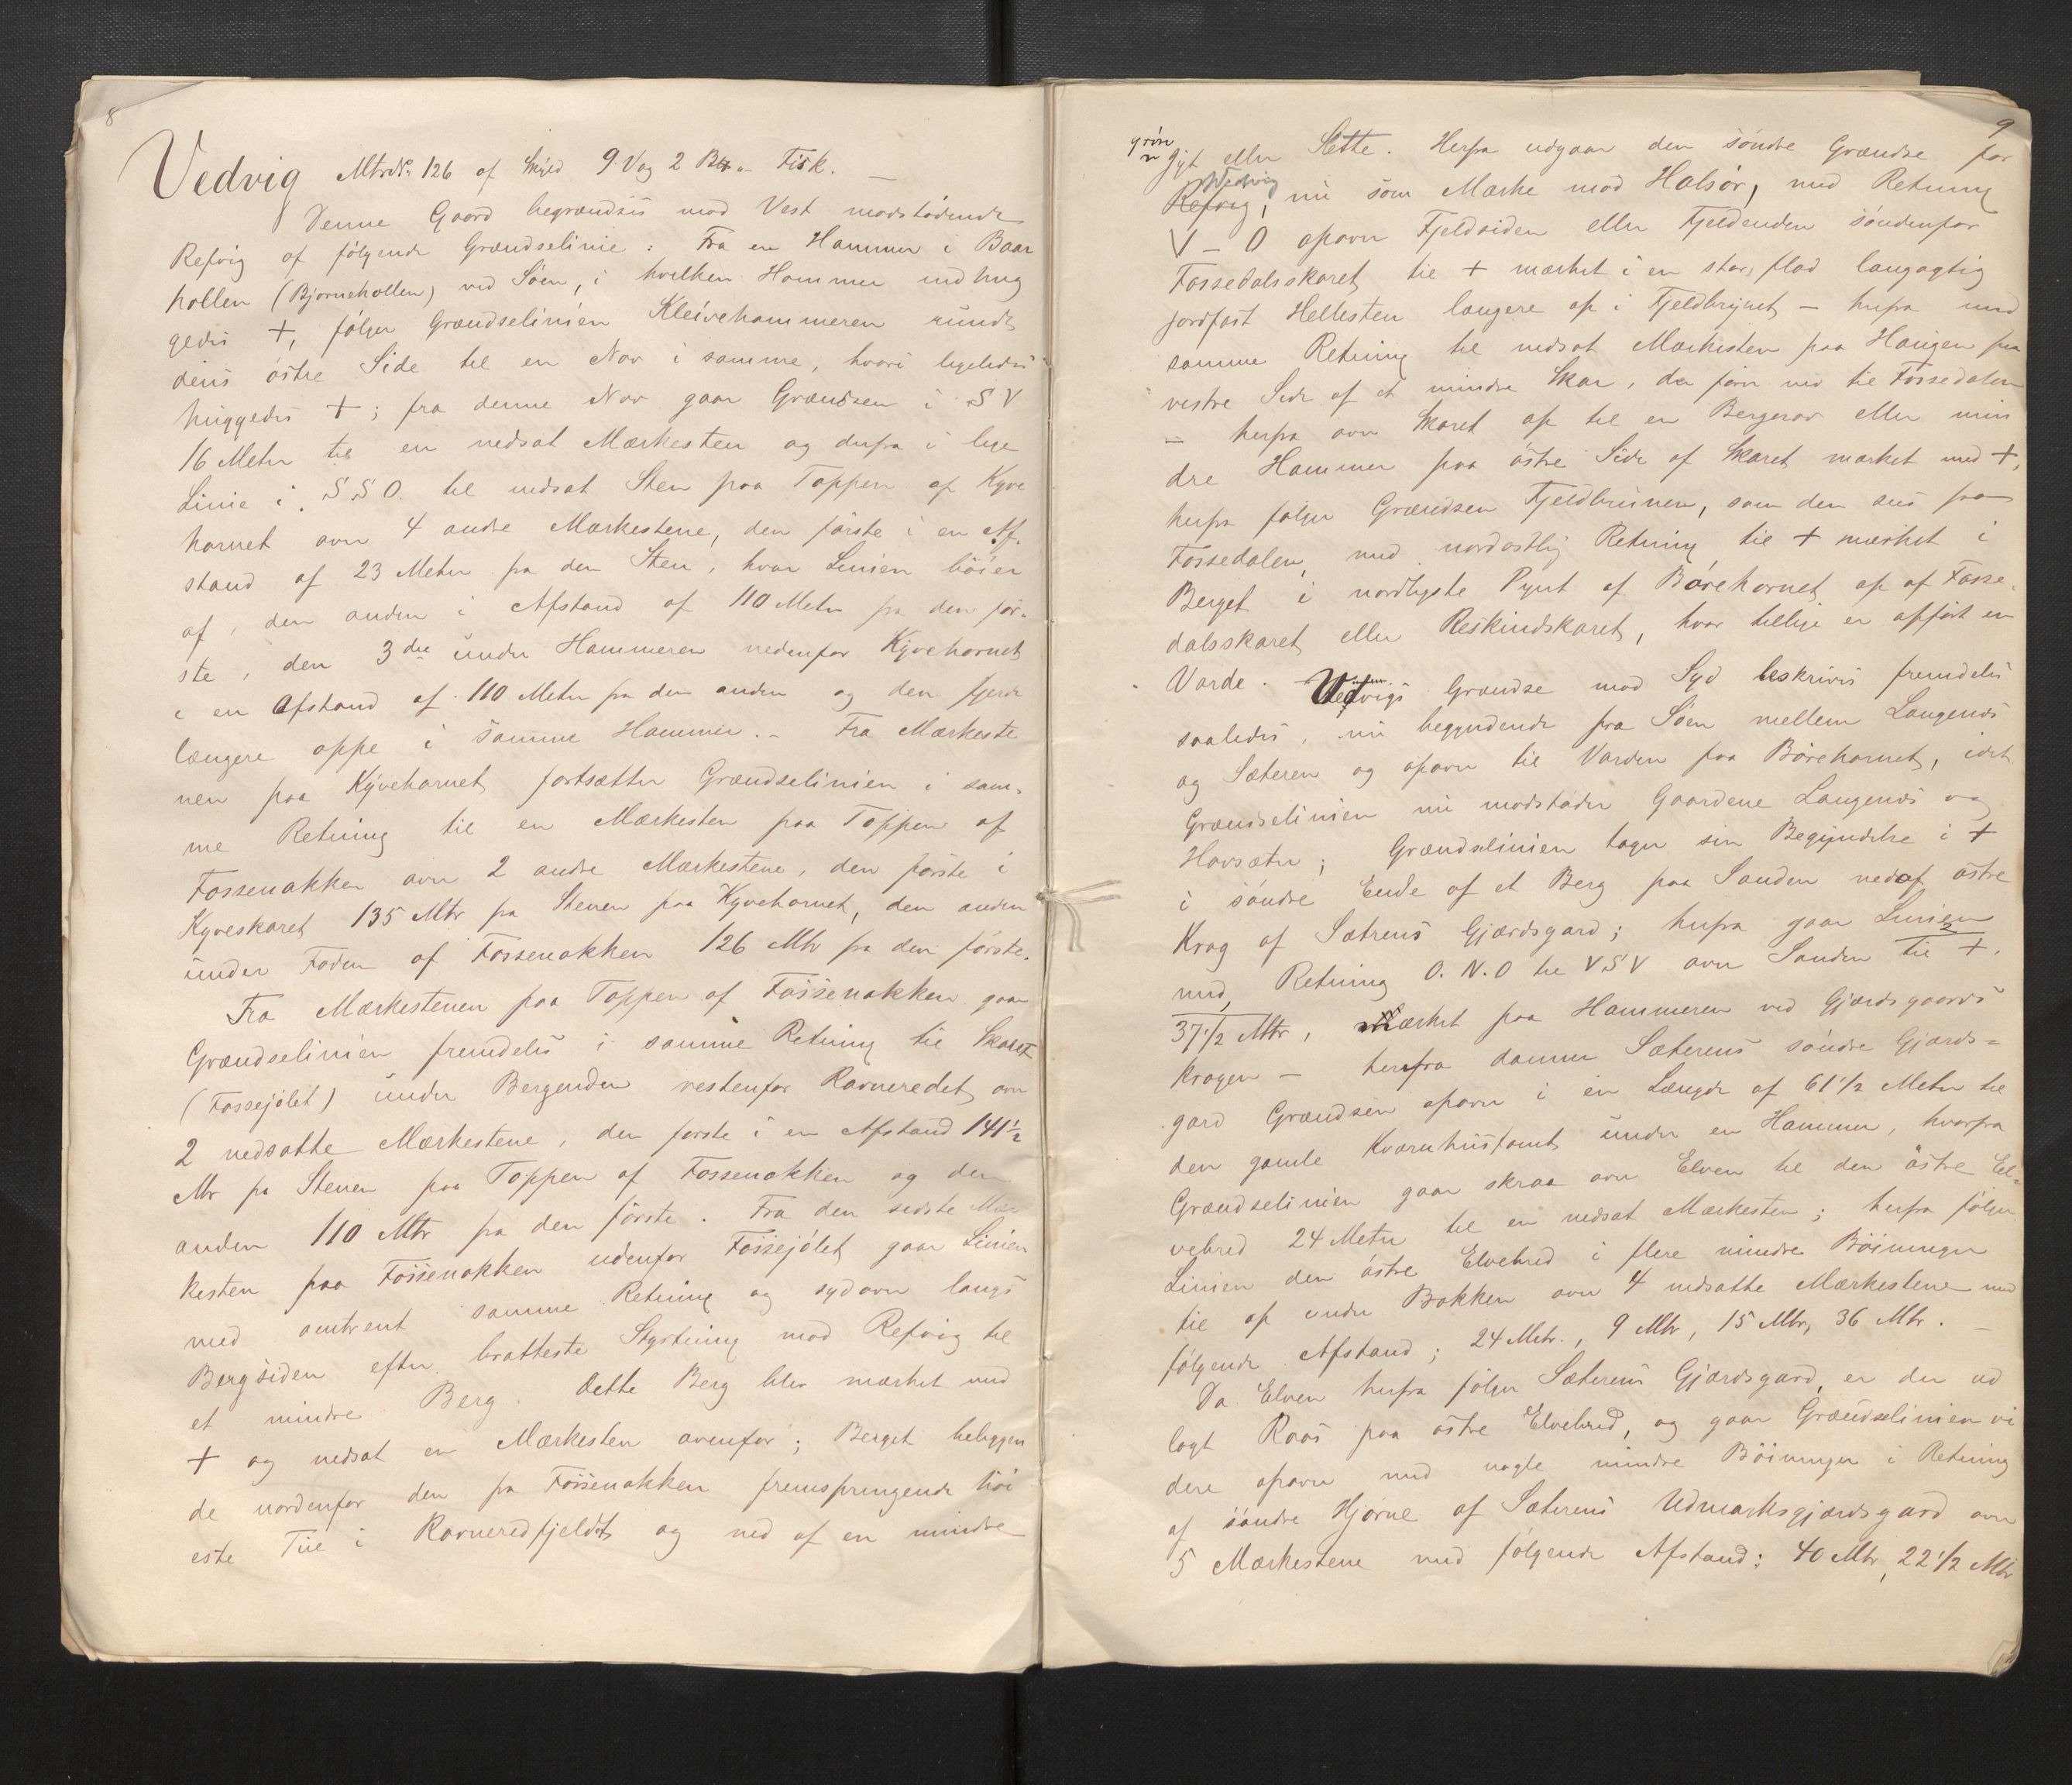 8
Vedvig Mtr№ 126 af Skyld 9 Vog 2 Fisk. —
Denne Gaard begrændses mod Vest modstødende
Refvig af følgende Grændselinie: Fra en Hammer i Baar
hollen (Bjørnehollen) ved Søen, i hvilken Hammer indhug
gedes +, følger Grændselinien Kleivehammeren rundt
dens østre Side til en Nov i samme, hvori ligeledes
huggedes +; fra denne Nov gaar Grændsen i SV
16 Meter til en nedsat Mærkesten og derfra i lige
Linie i S.S.O. til nedsat Sten paa Toppen af Kyve
hornet over 4 andre Mærkestene, den første i en Af-
stand af 23 Meter fra den Sten, hvor Linien bøier
af, den anden i Afstand af 110 Meter fra den før-
ste, den 3die under Hammeren nedenfor Kyvehornet
i en Afstand af 110 Meter fra den anden og den fjerde
længere oppe i samme Hammer. – Fra Mærkeste
nen paa Kyvehornet fortsætter Grændselinien i sam-
me Retning til en Mærkesten paa Toppen af
Fossenakken over 2 andre Mærkestene, den første i
Kyveskaret 135 Mtr fra Stenen paa Kyvehornet, den anden
under Foden af Fossenakken 126 Mtr fra den første.
Fra Mærkestenen paa Toppen af Fossenakken gaar
Grændselinien fremdeles i samme Retning til Skaret
(Fossejølet) under Bergenden vestenfor Ravneredet over
2 nedsatte Mærkestene, den første i en Afstand 141½
Mr fra Stenen paa Toppen af Fossenakken og den
anden 110 Mtr fra den første. Fra den sidste Mær
kesten paa Fossenakken udenfor Fossejølet gaar Linien
med omtrent samme Retning og sydover langs
Bergsiden efter bratteste Styrtning mod Refvig til
et mindre Berg. Dette Berg blev mærket med
+ og nedsat en Mærkesten ovenfor; Berget beliggen
de nordenfor den fra Fossenakken fremspringende høi
este Tue i Ravneredfjeldet og ned af en mindre
9
grøn
Gjyt eller Slette. Herfra udgaar den søndre Grændse for
Vedvig
Refvig, nu som Mærke mod Halsør, med Retning
V – O opover Fjeldsiden eller Fjeldenden søndenfor
Fossedalsskaret til + mærket i en stor, flad langagtig
jordfast Hellesten længere op i Fjeldbrynet — herfra med
samme Retning til nedsat Mærkesten paa Haugen paa
vestre Side af et mindre Skar, der fører ned til Fossedalen
— herfra over Skaret op til en Bergnov eller min
dre Hammer paa østre Side af Skaret mærket med +,
herfra følger Grændsen Fjeldbrunen, som den sees fra
Fossedalen, med nordostlig Retning til + mærket i
Berget i nordligste Pynt af Børehornet op af Fosse-
dalsskaret eller Reskindskaret, hvor tillige er opført en
Varde. Vedvigs Grændse mod Syd beskrives fremdeles
saaledes, nu begyndende fra Søen mellem Langenes
og Sæteren og opover til Varden paa Børehornet, idet
Grændselinien nu modstøder Gaardene Langenes og
Hovsæter; Grændselinien tager sin Begyndelse i +
i søndre Ende af et Berg paa Sanden nedaf østre
Krog af Sætrens Gjærdsgard; herfra gaar Linien
med Retning O.N.O til V.S.V over Sanden til +,
37½ Mtr, mærket paa Hammeren ved Gjærdsgaards
krogen — herfra danner Sæterens søndre Gjærds=
gard Grændsen opover i en Længde af 61½ Meter til
den gamle Kværnhustomt under en Hammer, hvorfra
Grændselinien gaar skraa over Elven til den østre El=
vebred 24 Meter til en nedsat Mærkesten; herfra følger
Linien den østre Elvebred i flere mindre Bøininger
til op under Bakken over 4 nedsatte Mærkestene med
følgende Afstand: 24 Metr., 9 Mtr, 15 Mtr, 36 Mtr. —
Da Elven herfra følger Sæterens Gjærdsgard, er der ud
lagt Raas paa østre Elvebred, og gaar Grændselinien vi
dere opover med nogle mindre Bøininger i Retning
af søndre Hjørne af Sæterens Udmarksgjærdsgard over
5 Mærkestene med følgende Afstand: 40 Mtr, 22½ Mtr